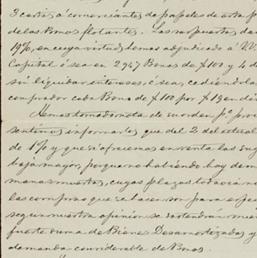 3 corts á comerciantes de papeles de esta p
de los Bonos flotantes. Las propuestas de
19%, en cuya virtud hemos adjudicado á
Capital ó sea en 2947 Bonos de $100 y 4 de
sin liquidar intereses ó sea, cediéndole
comprador cada Bono de $100 por $19 en di
Hemos tomado nota de su orden pª pro
sentimos informarles que del 2 del actual
de 1% y que si ofrecemos en venta los suy
baja mayor, porque no habiendo hoy dem
manos muertas, cuyos plazos todavía no
las compras que se hacen son para espec
según nuestra opinión se sostendrán
fuerte suma de Bienes Desamortizados y
demanda considerable de Bonos.